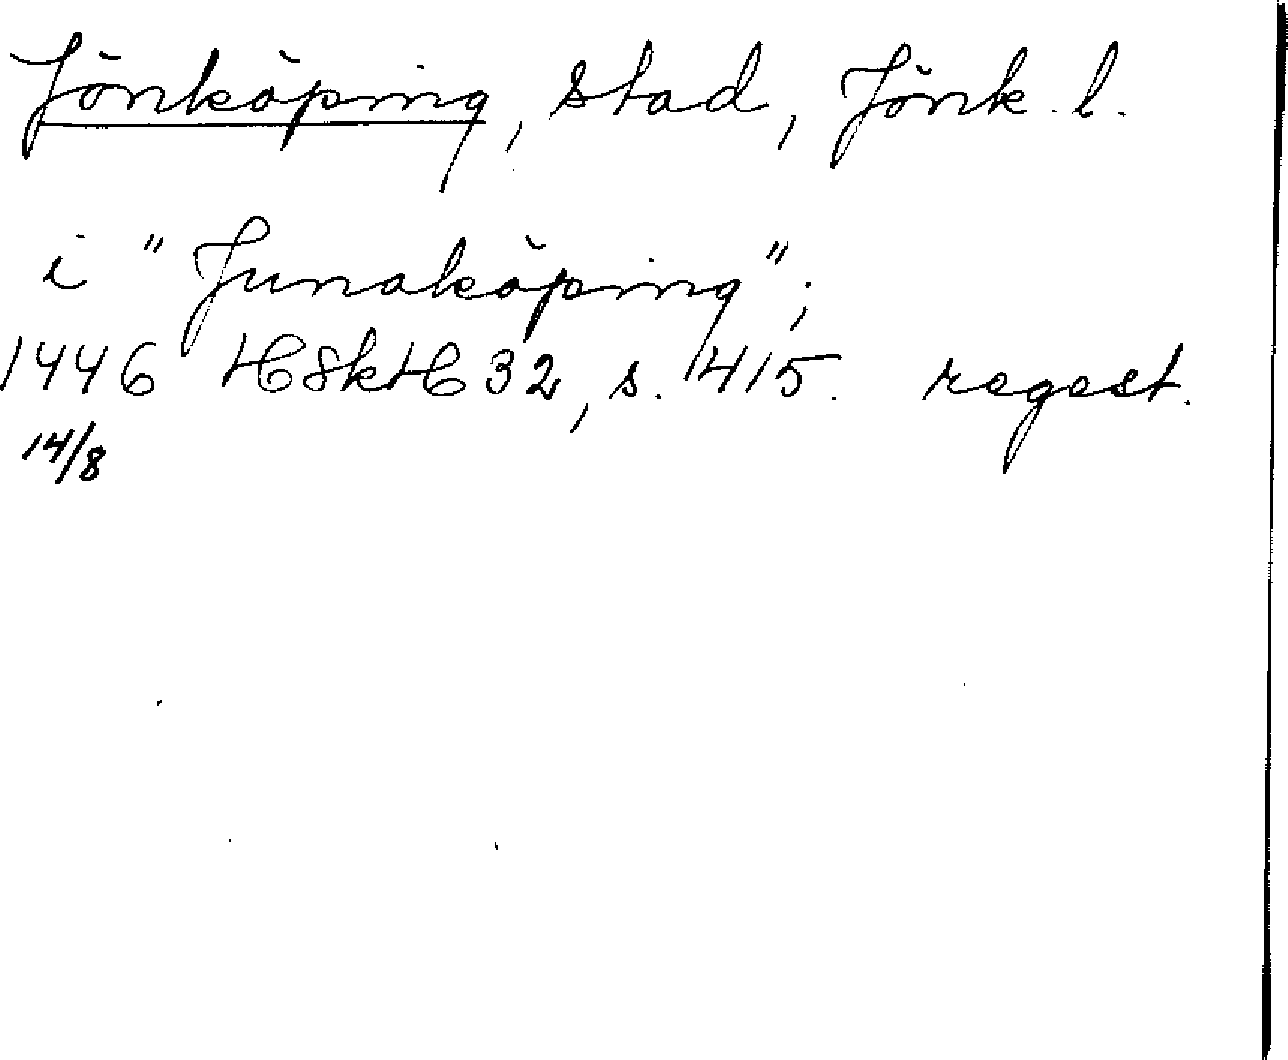 Jönköping, stad, Jönk. l.
i "Junaköping";
1446 HSkH 32, s. 415. regest.
14/8